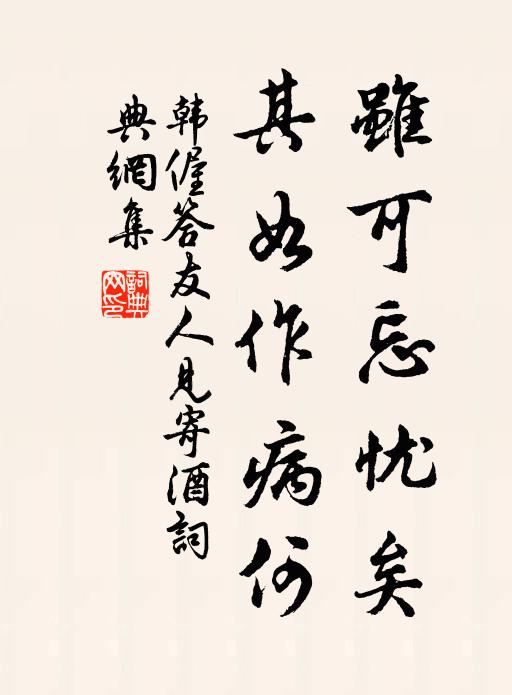 雖可忘忧矣
其如作病何
韩偓答友人見寄酒詞
典網集
詞典
网印